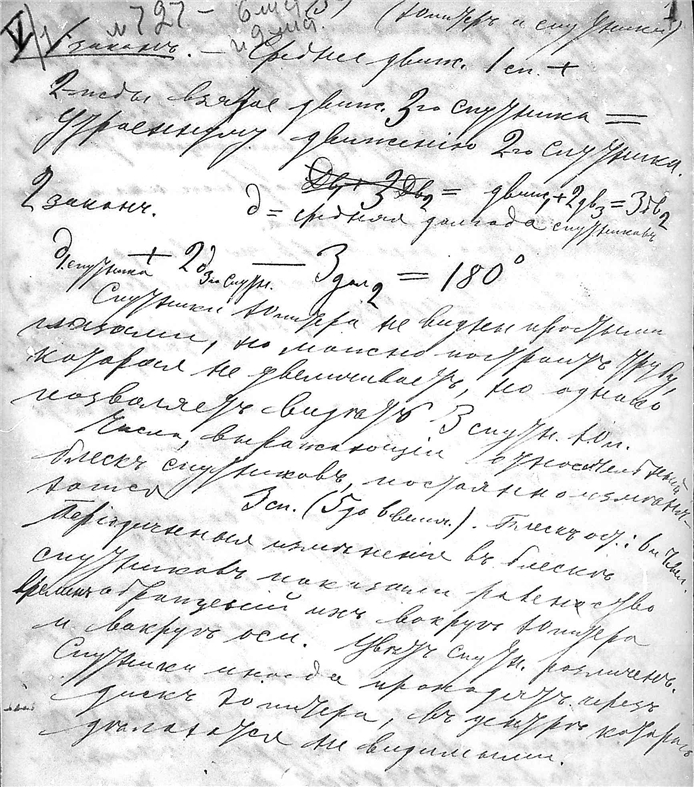 V № 727 – (Юпитеръ и спутники) 1
1 законъ. – Среднее движ. 1 сп. +
2-жды взятое движ. 3го спутника =
утроенному движенію 2го спутника.
Дв1 + 3Дв2 = движ1 + 2дв3 = 3дв2
2 законъ. д = средняя долгота спутниковъ
д1 спутника + 2д 3го спутн. — 3 дол2 = 180°
Спутники Юпитера не видны простыми
глазами, но можно построить трубу,
которая не увеличиваетъ, но однако
позволяетъ видѣть 3 спутн. Юп.
Числа, выражающія относительный
блескъ спутниковъ, постоянно измѣня-
ются 3 сп. (5 до 6 велич.). Блескъ ост.: 6 и 7 вел.
Періодичныя измѣненія въ блескѣ
спутниковъ показали равенство
временъ обращеній ихъ вокругъ Юпитера
и вокругъ оси. Цвѣтъ спутн. различенъ.
Спутники иногда проходятъ черезъ
дискъ Юпитера, въ центрѣ котораго
дѣлаются не видимыми.